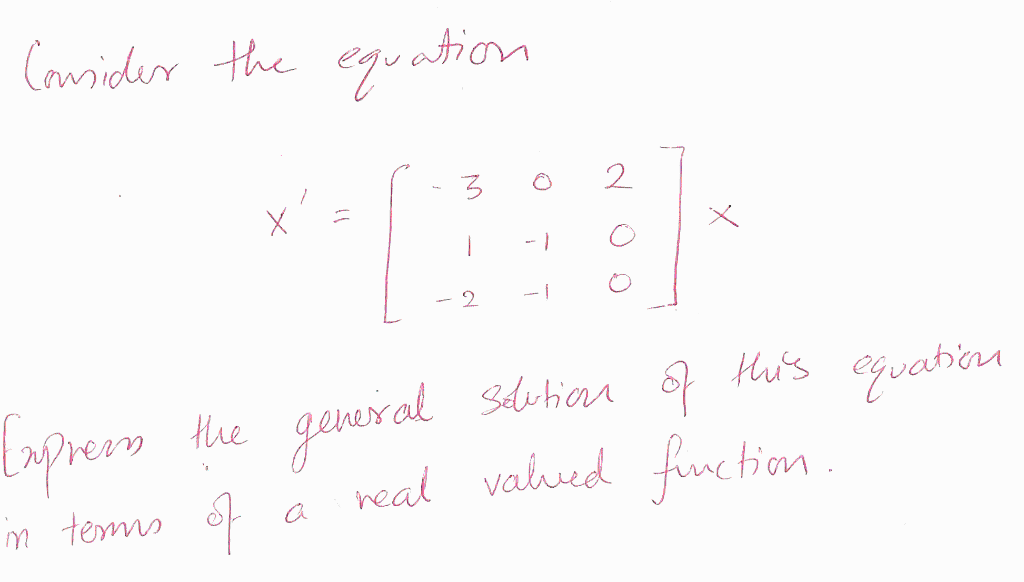 Consider the equation
x' = [ -3 0 2
1 -1 0
-2 -1 0 ] x
Express the general solution of this equation
in terms of a real valued function.